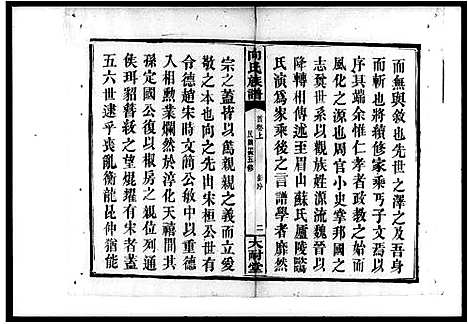 而無與敘也先世之澤之及吾身
而斬也將續修家乘丐子文焉以
序其端余惟仁孝敬讓之教天下
風化之源也周官小史掌邦國之
志奠世系以觀族姓源流魏晉以
降轉相傳述至眉山蘇氏廬陵歐
氏演爲家乘後之言譜學者靡然
向氏族譜
首卷上
民國
五修
二
大耐堂
宗之蓋皆以萬親親之義而立愛
敬之本也向之先出宋桓公世有
令德趙宋時文簡公敏中重厚德
入相勳業爛然於淳化天禧間其
孫定國公復以椒房之親位列通
侯珥貂簪紱之望焜耀有宋者蓋
五六世逮乎喪亂衡龍昆仲猶能